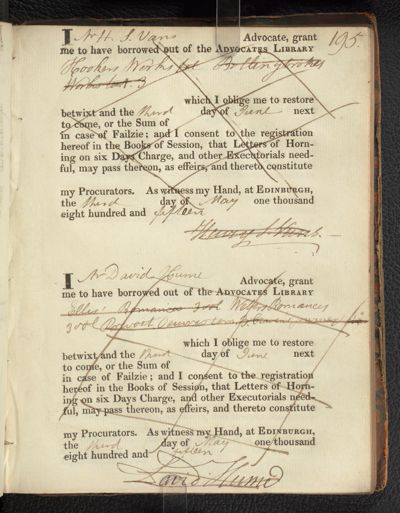 195.
I Mr H. S. Vans Advocate, grant
me to have borrowed out of the ADVOCATES LIBRARY
Hookers Works
Works
which I oblige me to restore
betwixt and the third day of June next
to come, or the Sum of
in case of Failzie; and I consent to the registration
hereof in the Books of Session, that Letters of Horn-
ing on six Days Charge, and other Executorials need-
ful, may pass thereon, as effeirs, and thereto constitute
my Procurators. As witness my Hand, at EDINBURGH,
the third day of May one thousand
eight hundred and fifteen
Henry S. Vans.
I Mr David Hume Advocate, grant
me to have borrowed out of the ADVOCATES LIBRARY
Ellis' Romances 3 vol Webers Romances
3 vol
which I oblige me to restore
betwixt and the third day of June next
to come, or the Sum of
in case of Failzie; and I consent to the registration
hereof in the Books of Session, that Letters of Horn-
ing on six Days Charge, and other Executorials need-
ful, may pass thereon, as effeirs, and thereto constitute
my Procurators. As witness my Hand, at EDINBURGH,
the third day of May one thousand
eight hundred and fifteen
David Hume